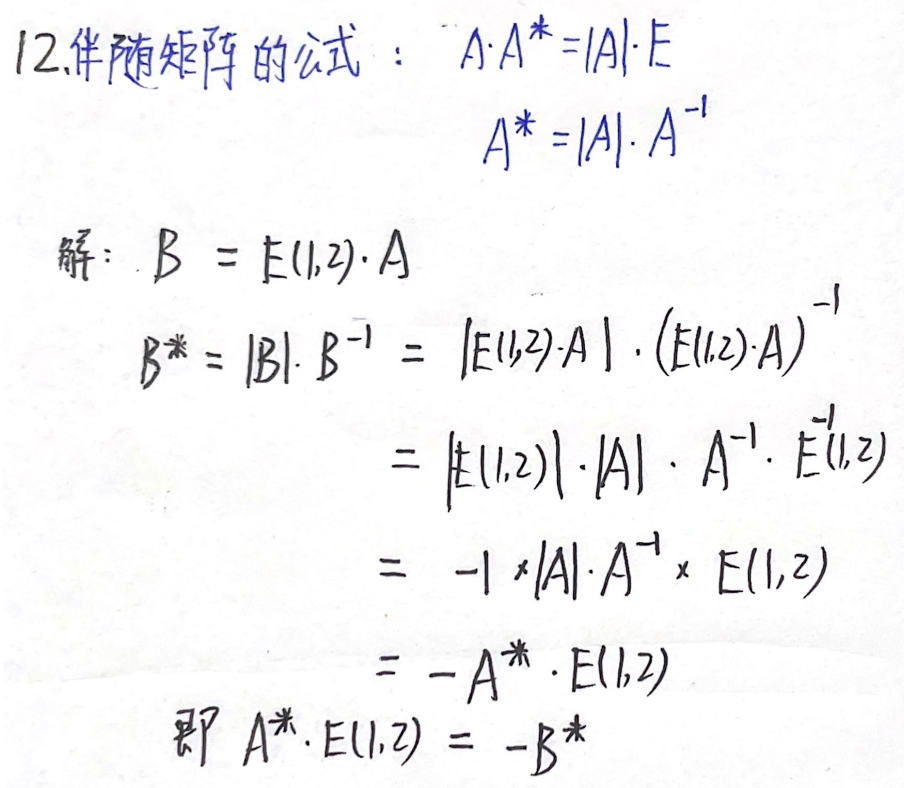 12.伴随矩阵的公式: A·A*=|A|·E
A*=|A|·A⁻¹
解: B = E(1,2)·A
B* = |B|·B⁻¹ = |E(1,2)·A|·(E(1,2)·A)⁻¹
= |E(1,2)|·|A|·A⁻¹·E⁻¹(1,2)
= -1×|A|·A⁻¹×E(1,2)
= -A*·E(1,2)
即 A*·E(1,2) = -B*